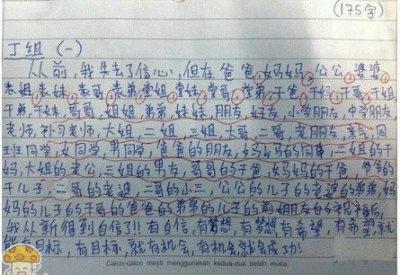 (175字)
丁组 (一)
从前,我失去了信心,但在爸爸,妈妈,公公,婆婆,
表姐,表妹,表哥,表弟,堂姐,堂妹,堂哥,堂弟,干爸,干妈,干哥,干姐,
干弟,干妹,哥哥,姐姐,弟弟,妹妹,朋友,好友,小学朋友,中学朋友,
老师,补习老师,大姐,二姐,三姐,大哥,二哥,老朋友,亲戚,同
班同学,女同学,男同学,爸爸的朋友,妈妈的同事,二姐的干
妈,大姐的老公,三姐的男友,哥哥的干爸,妈妈的干爸,爸爸的
干儿子,二哥的老婆,二哥的小三,公公的儿子的老婆的弟弟,妈
妈的儿子的干哥的爸爸的弟弟的儿子的的朋友的祝福后,
我从新得到自信!!有自信,有梦想,有梦想有希望,有希望,就
有目标,有目标,就有机会,有机会就会成功!
Calon-calon mesti menggunakan kedua-dua belah muka